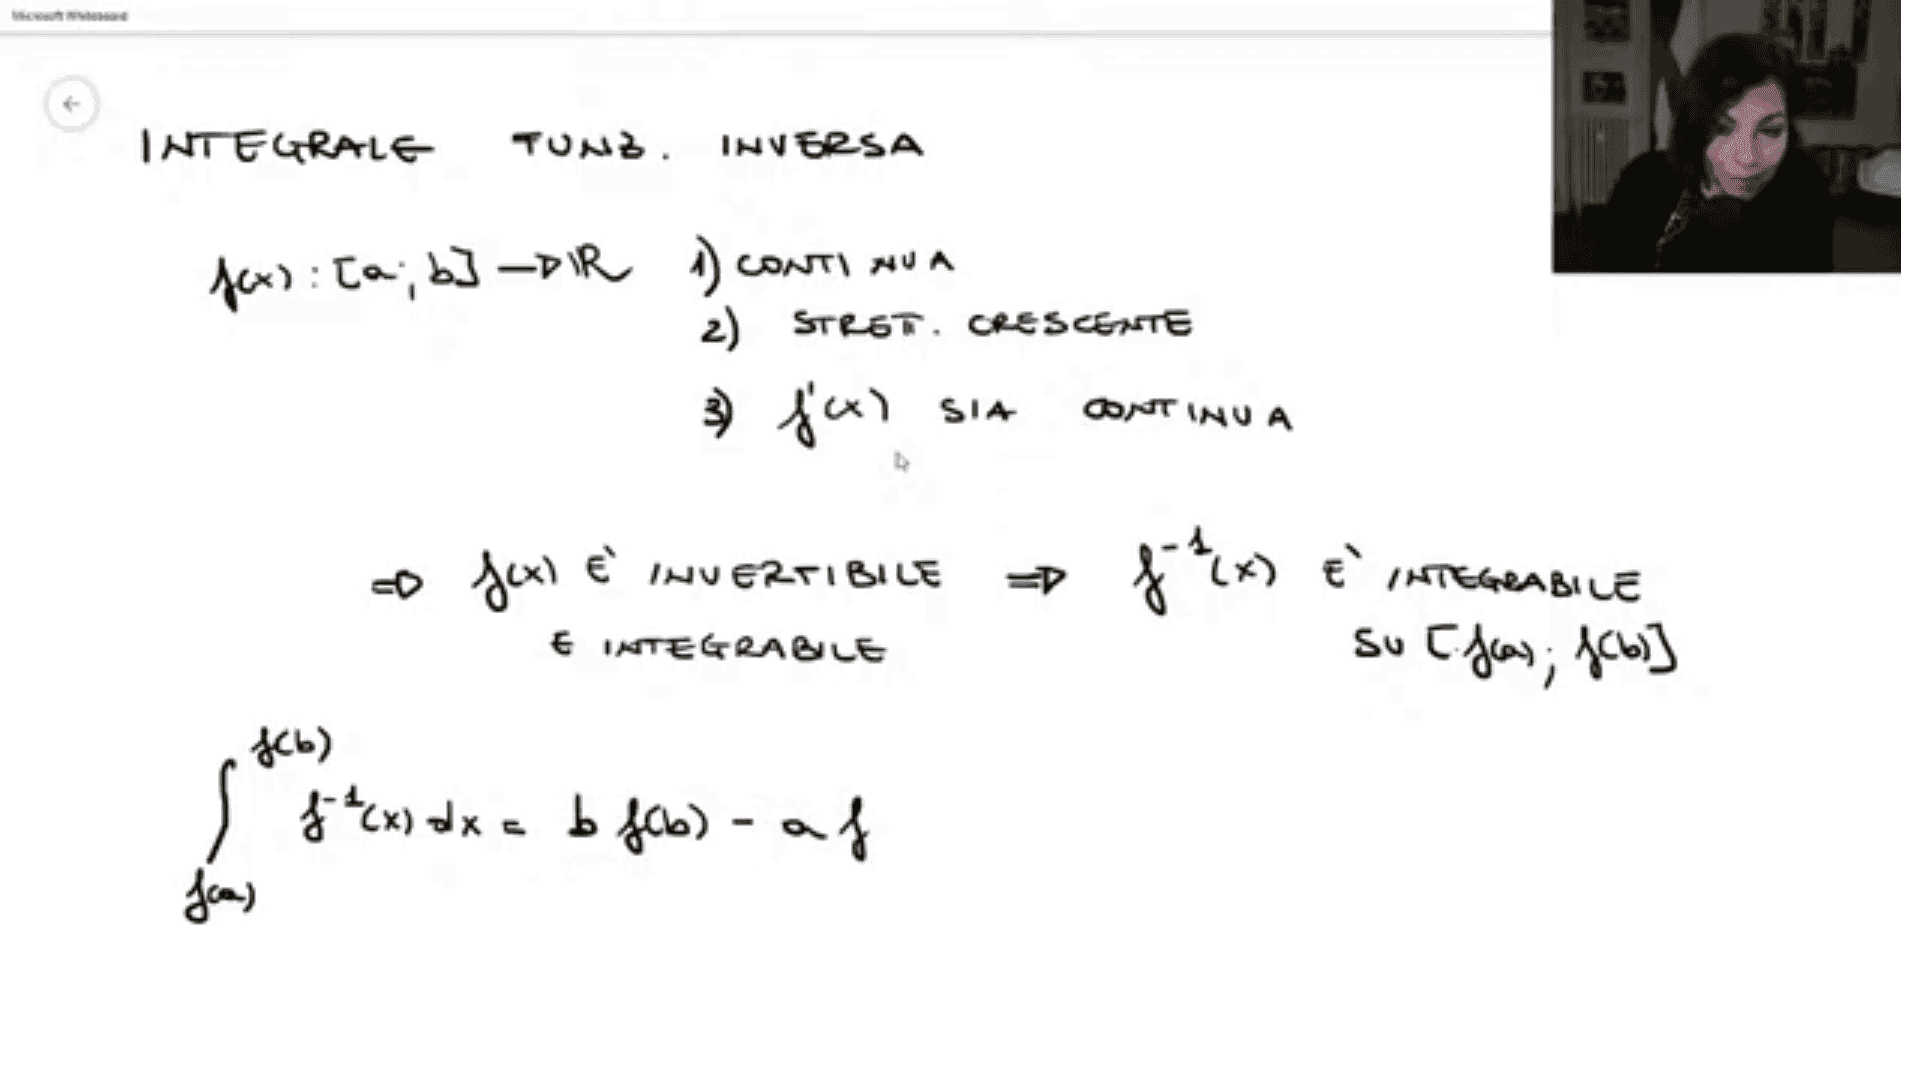 Microsoft Whiteboard
INTEGRALE FUNZ. INVERSA
f(x) : [a ; b] → ℝ 1) CONTINUA
2) STRETT. CRESCENTE
3) f'(x) SIA CONTINUA
⇒ f(x) E' INVERTIBILE ⇒ f⁻¹(x) E' INTEGRABILE
E INTEGRABILE SU [f(a) ; f(b)]
f(b)
∫ f⁻¹(x) dx = b f(b) - a f
f(a)